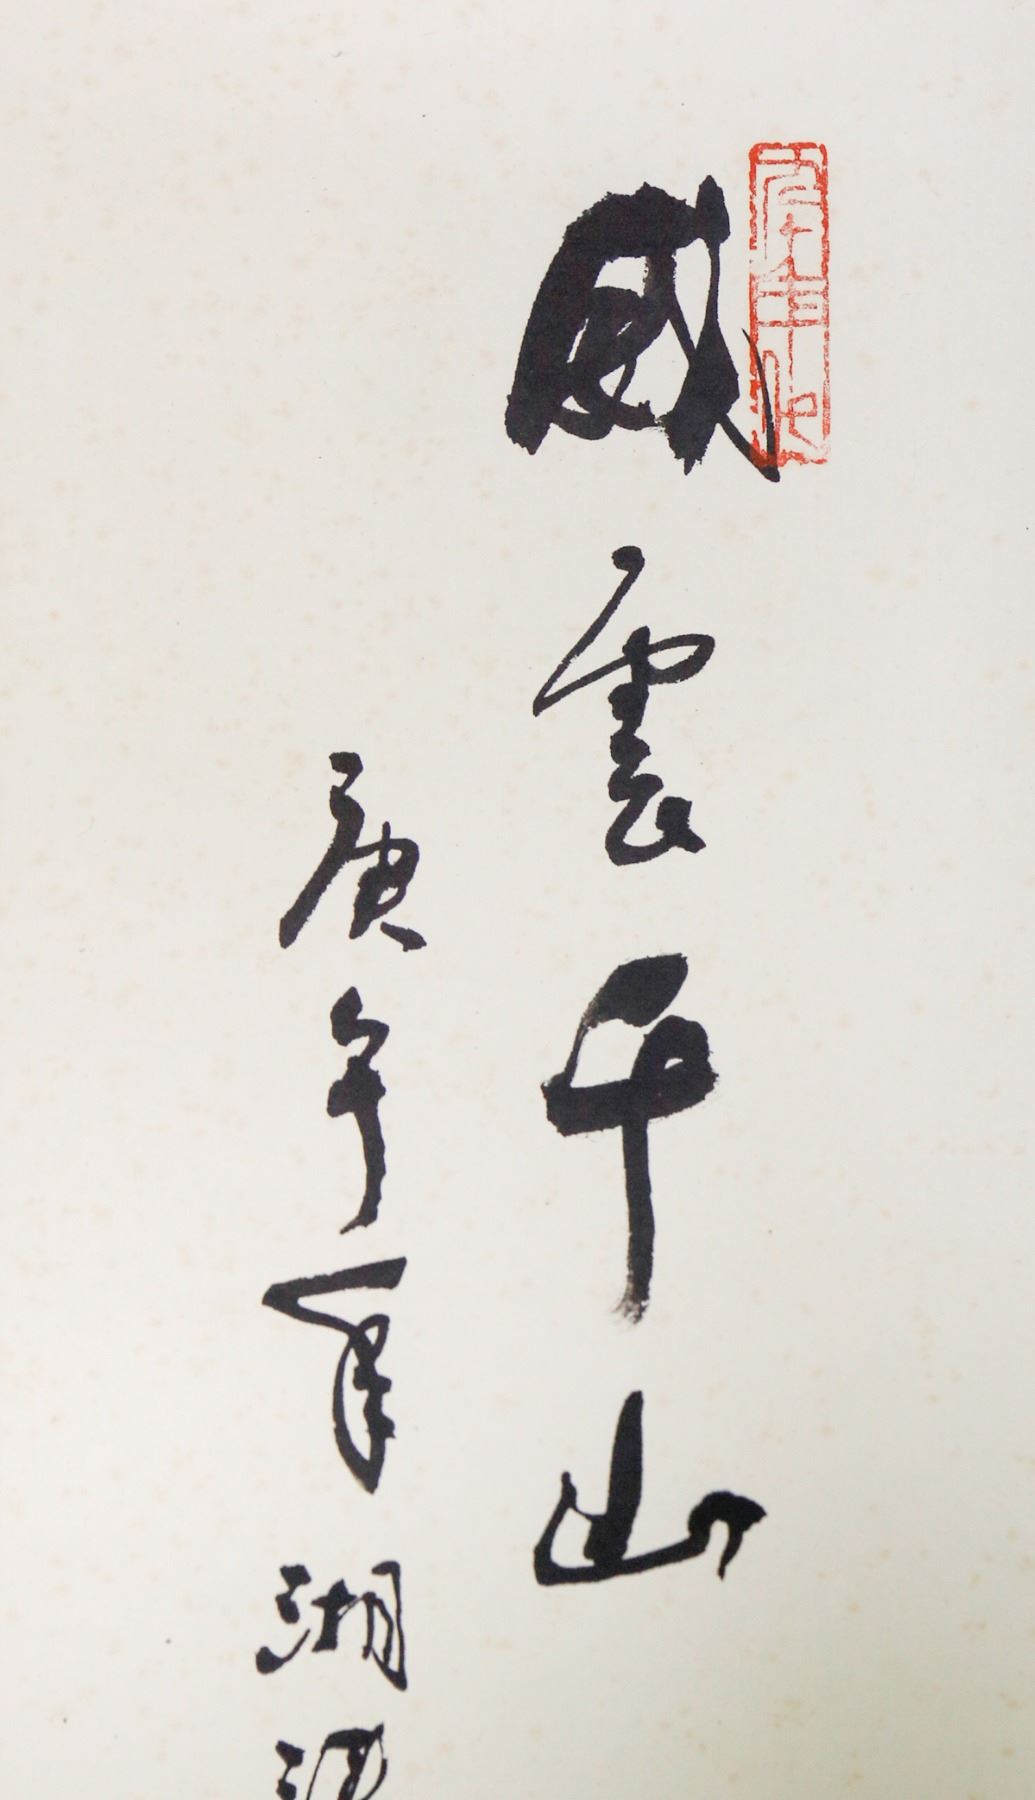 威雲千山
庚午年湖